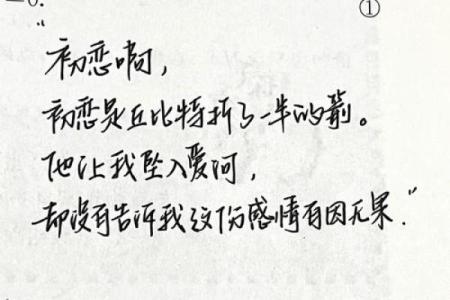 ①
“初恋啊，
初恋是丘比特折了一半的箭。
他让我坠入爱河，
却没有告诉我这份感情有因无果.”